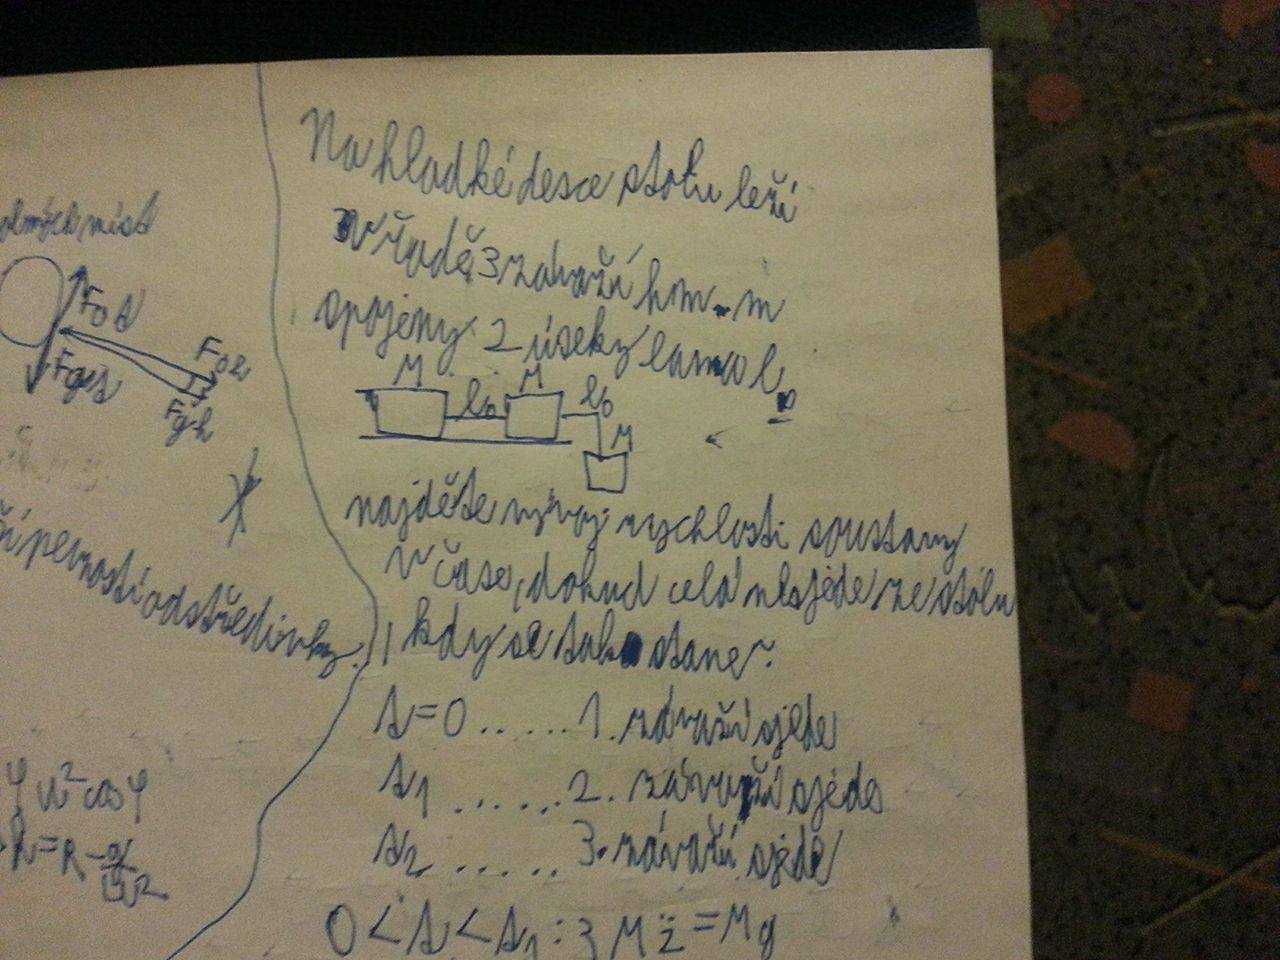 Na hladké desce stolu leží
v řadě 3 závaží hm. m
spojeny 2 úseky lana l₀
M M
l₀ l₀
M
najděte vývoj rychlosti soustavy
v čase, dokud celá nesjede ze stolu
, kdy se tak stane?
t=0 ...... 1. závaží sjede
t₁ ...... 2. závaží sjede
t₂ ...... 3. závaží sjede
0 < t < t₁ : 3 M z̈ = Mg
míst
F₀
Fg
pevnosti odstředivky.
φ ω² cos φ
h = R - g/ω²